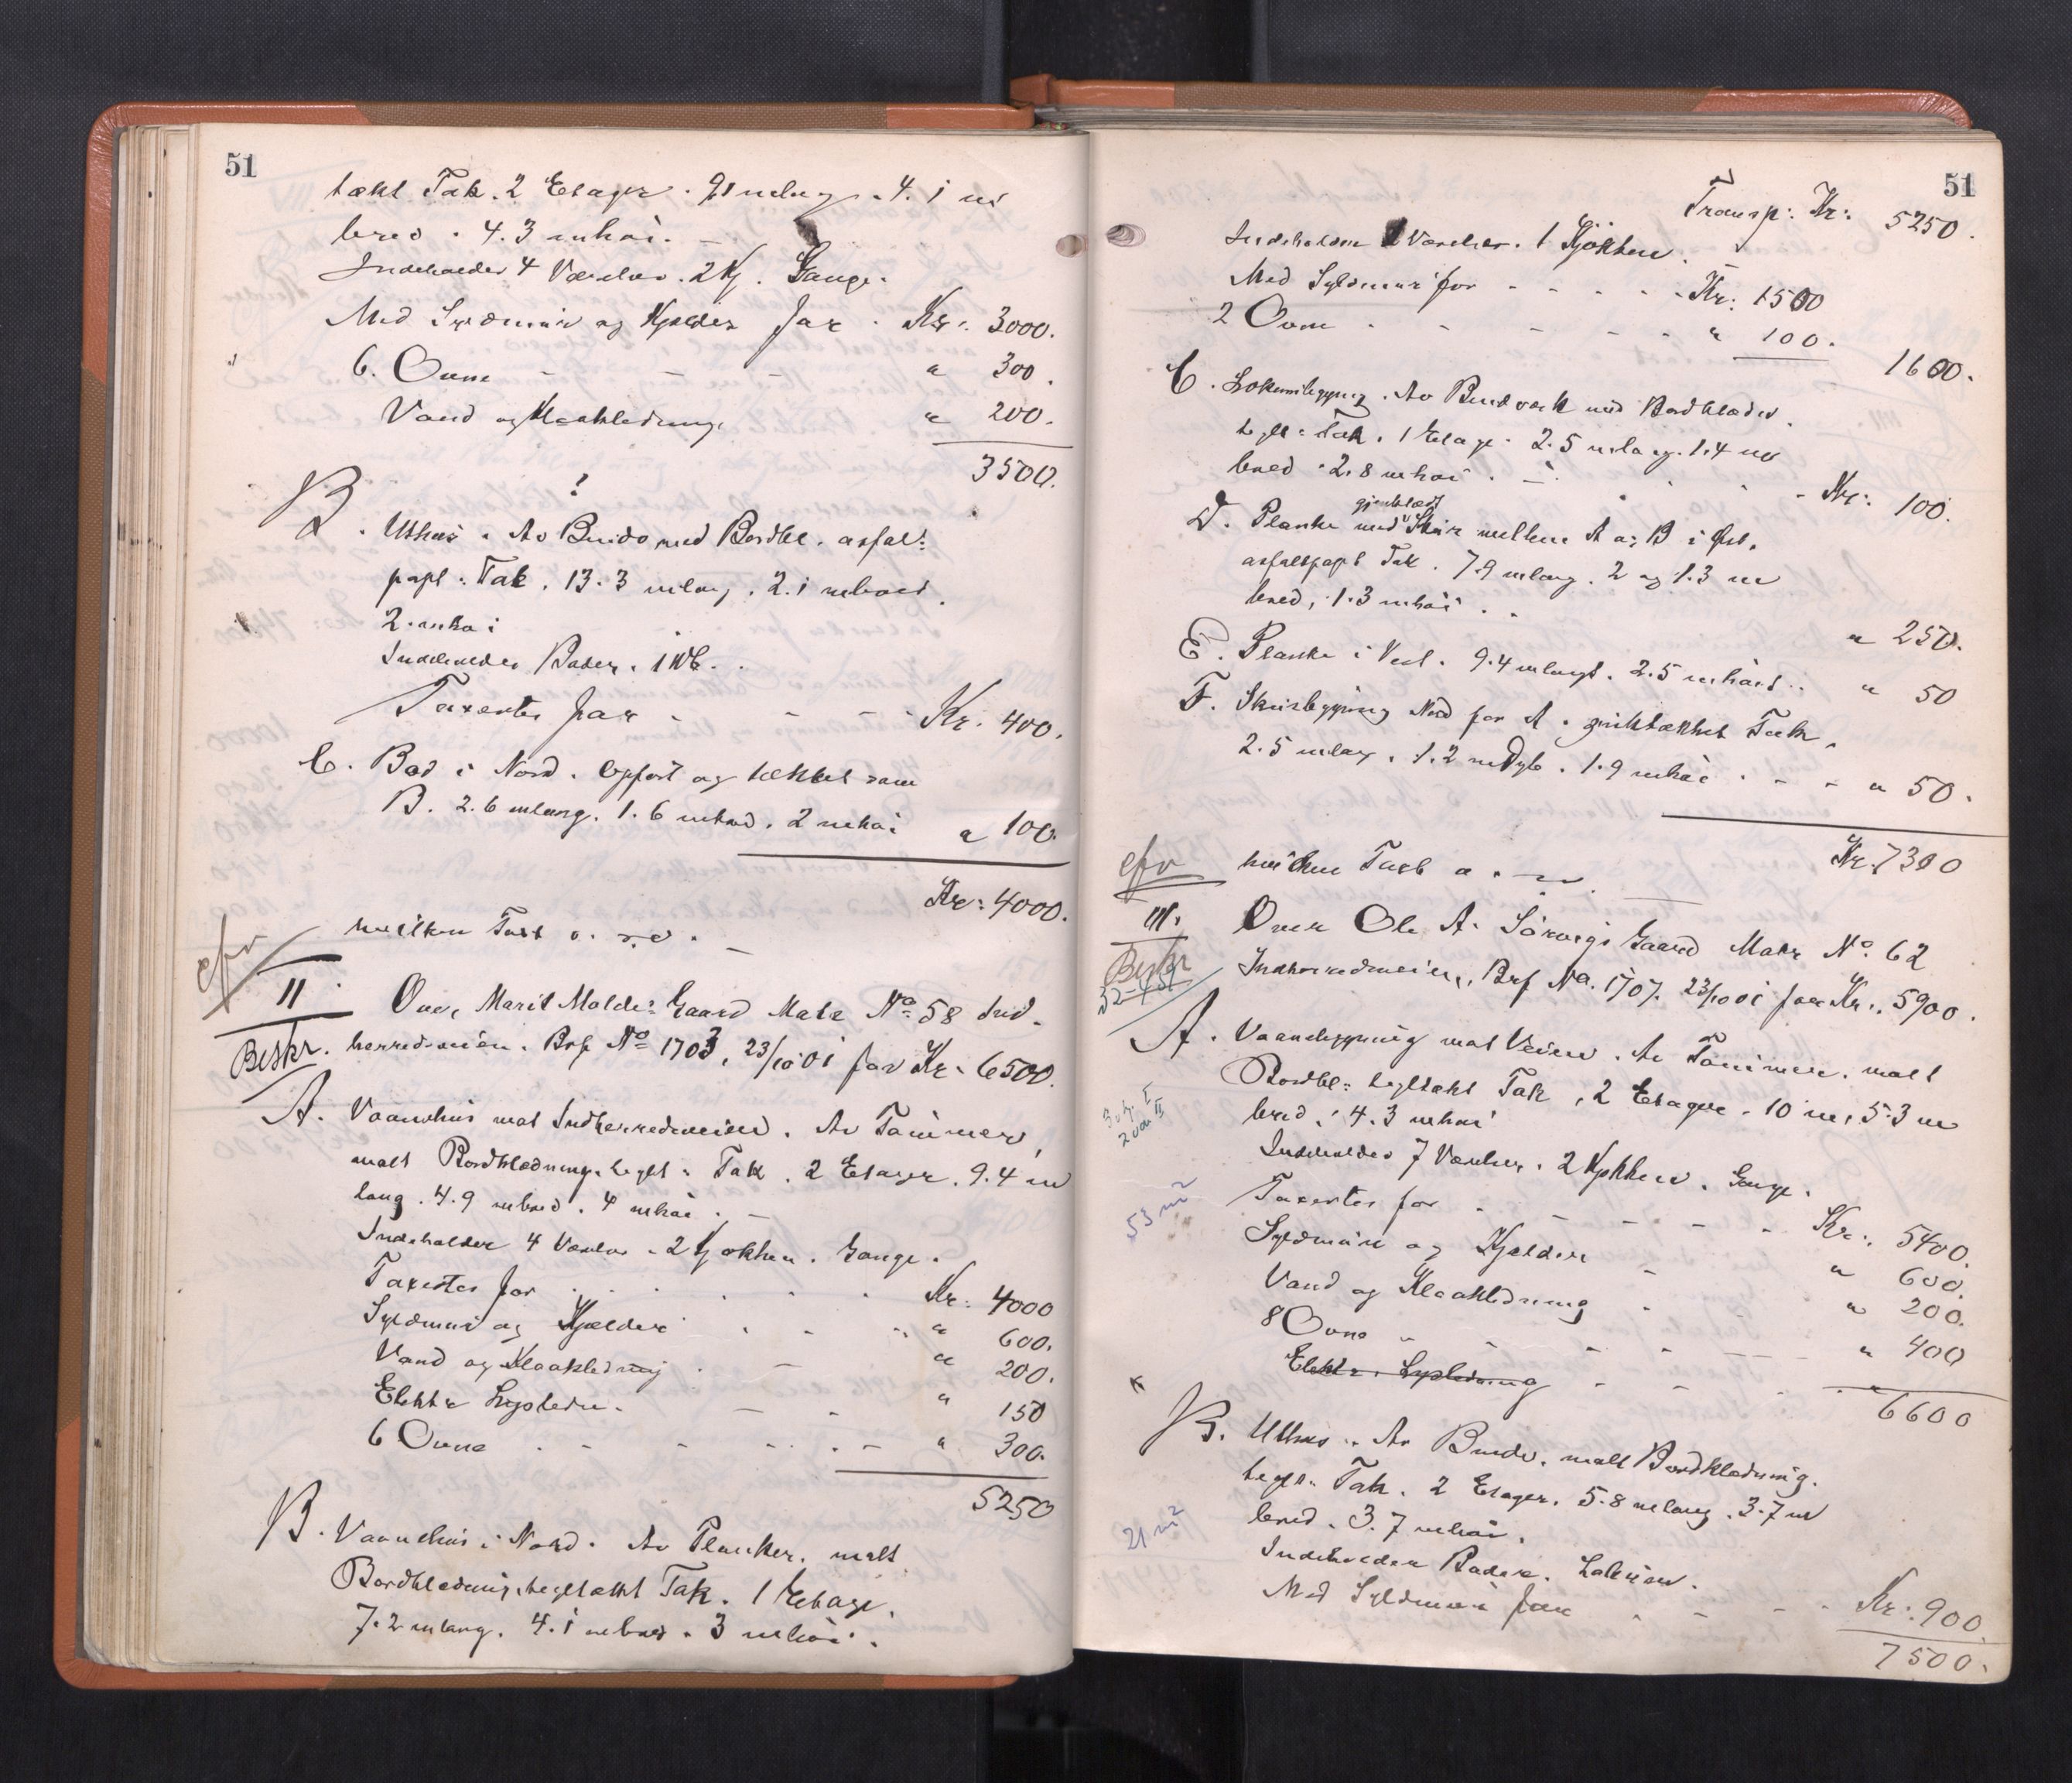 51
tækt Tak. 2 Etager. 9.1 m lang. 4.1 m
bred. 4.3 m høi.
Indeholder 4 Værelser. 2 Kj. Gange.
Med Syldmur og Kjelder for Kr. 3000.
6. Ovne " 300.
Vand og Kloakledning " 200.
3500.
B. Uthus. Av Bindv. med Bordkl. asfalt-
papt. Tak. 13.3 m lang. 2.1 m bred.
2. m høi
Indeholder Boder. 1 WC.
Taxertes for Kr. 400.
C. Bod i Nord. Opført og tækket som
B. 2.6 m lang. 1.6 m bred. 2 m høi " 100.
Kr: 4000.
hvilken Taxt o. s. v.
efv
II. Over Marit Molde: Gaard Matr No 58 Ind-
Beskr. herredsveien. Brf No 1703, 23/10 01 for Kr. 6500.
A. Vaanehus mot Indherredsveien. Av Tømmer,
malt Bordklædning. teglt. Tak. 2 Etager. 9.4 m
lang. 4.9 m bred. 4 m høi.
Indeholder 4 Værelser. 2 Kjøkken. Gange.
Taxertes for Kr. 4000
Syldmur og Kjelder " 600.
Vand og Kloakledning " 200.
Elektr Lysledn. " 150
6 Ovne " 300.
5250
B. Vaanehus i Nord. Av Planker. malt
Bordklædning. tegltækt Tak. 1 Etage.
7.2 m lang. 4.1 m bred. 3 m høi.
51
Transp: Kr: 5250.
Indeholder 2 Værelser. 1 Kjøkken.
Med Syldmur for Kr: 1500
2 Ovne " 100.
1600.
C. Lokumsbygning. Av Bindverk med Bordklædn.
teglt. Tak. 1 Etage. 2.5 m lang. 1.4 m
bred. 2.8 m høi. Kr: 100.
D. Planke med Skur mellem A og B i Øst.
asfaltpapt Tak. 7.9 m lang. 2 og 1.3 m
bred, 1.3 m høi. " 250.
E. Planke i Vest. 9.4 m langt. 2.5 m høit. " 50
F. Skurbygning Nord for A. Tak.
2.5 m lang. 1.2 m Dyb. 1.9 m høi. " 50.
Kr. 7300
efv hvilken Taxt o. s. v.
III. Over Ole A. Sørvigs Gaard Matr No 62
Beskr Indherredsveien. Brf No. 1707. 23/10 01 for Kr. 5900.
52-451
A. Vaanebygning mot Veien. Av Tømmer. malt
Bordkl: tegltækt Tak, 2 Etager. 10 m, 5.3 m
bred. 4.3 m høi
Indeholder 7 Værelser. 2 Kjøkken. Gange.
Taxertes for Kr. 5400.
53 m2
Syldmur og Kjelder " 600.
Vand og Kloakledning " 200.
8 Ovne " 400
Elektr. Lysledning
6600
B. Uthus. Av Bindv. malt Bordklædning.
teglt. Tak. 2 Etager. 5.8 m lang. 3.7 m
bred. 3.7 m høi.
21 m2
Indeholder Boder. Lokum.
Med Syldmur for Kr: 900.
7500.